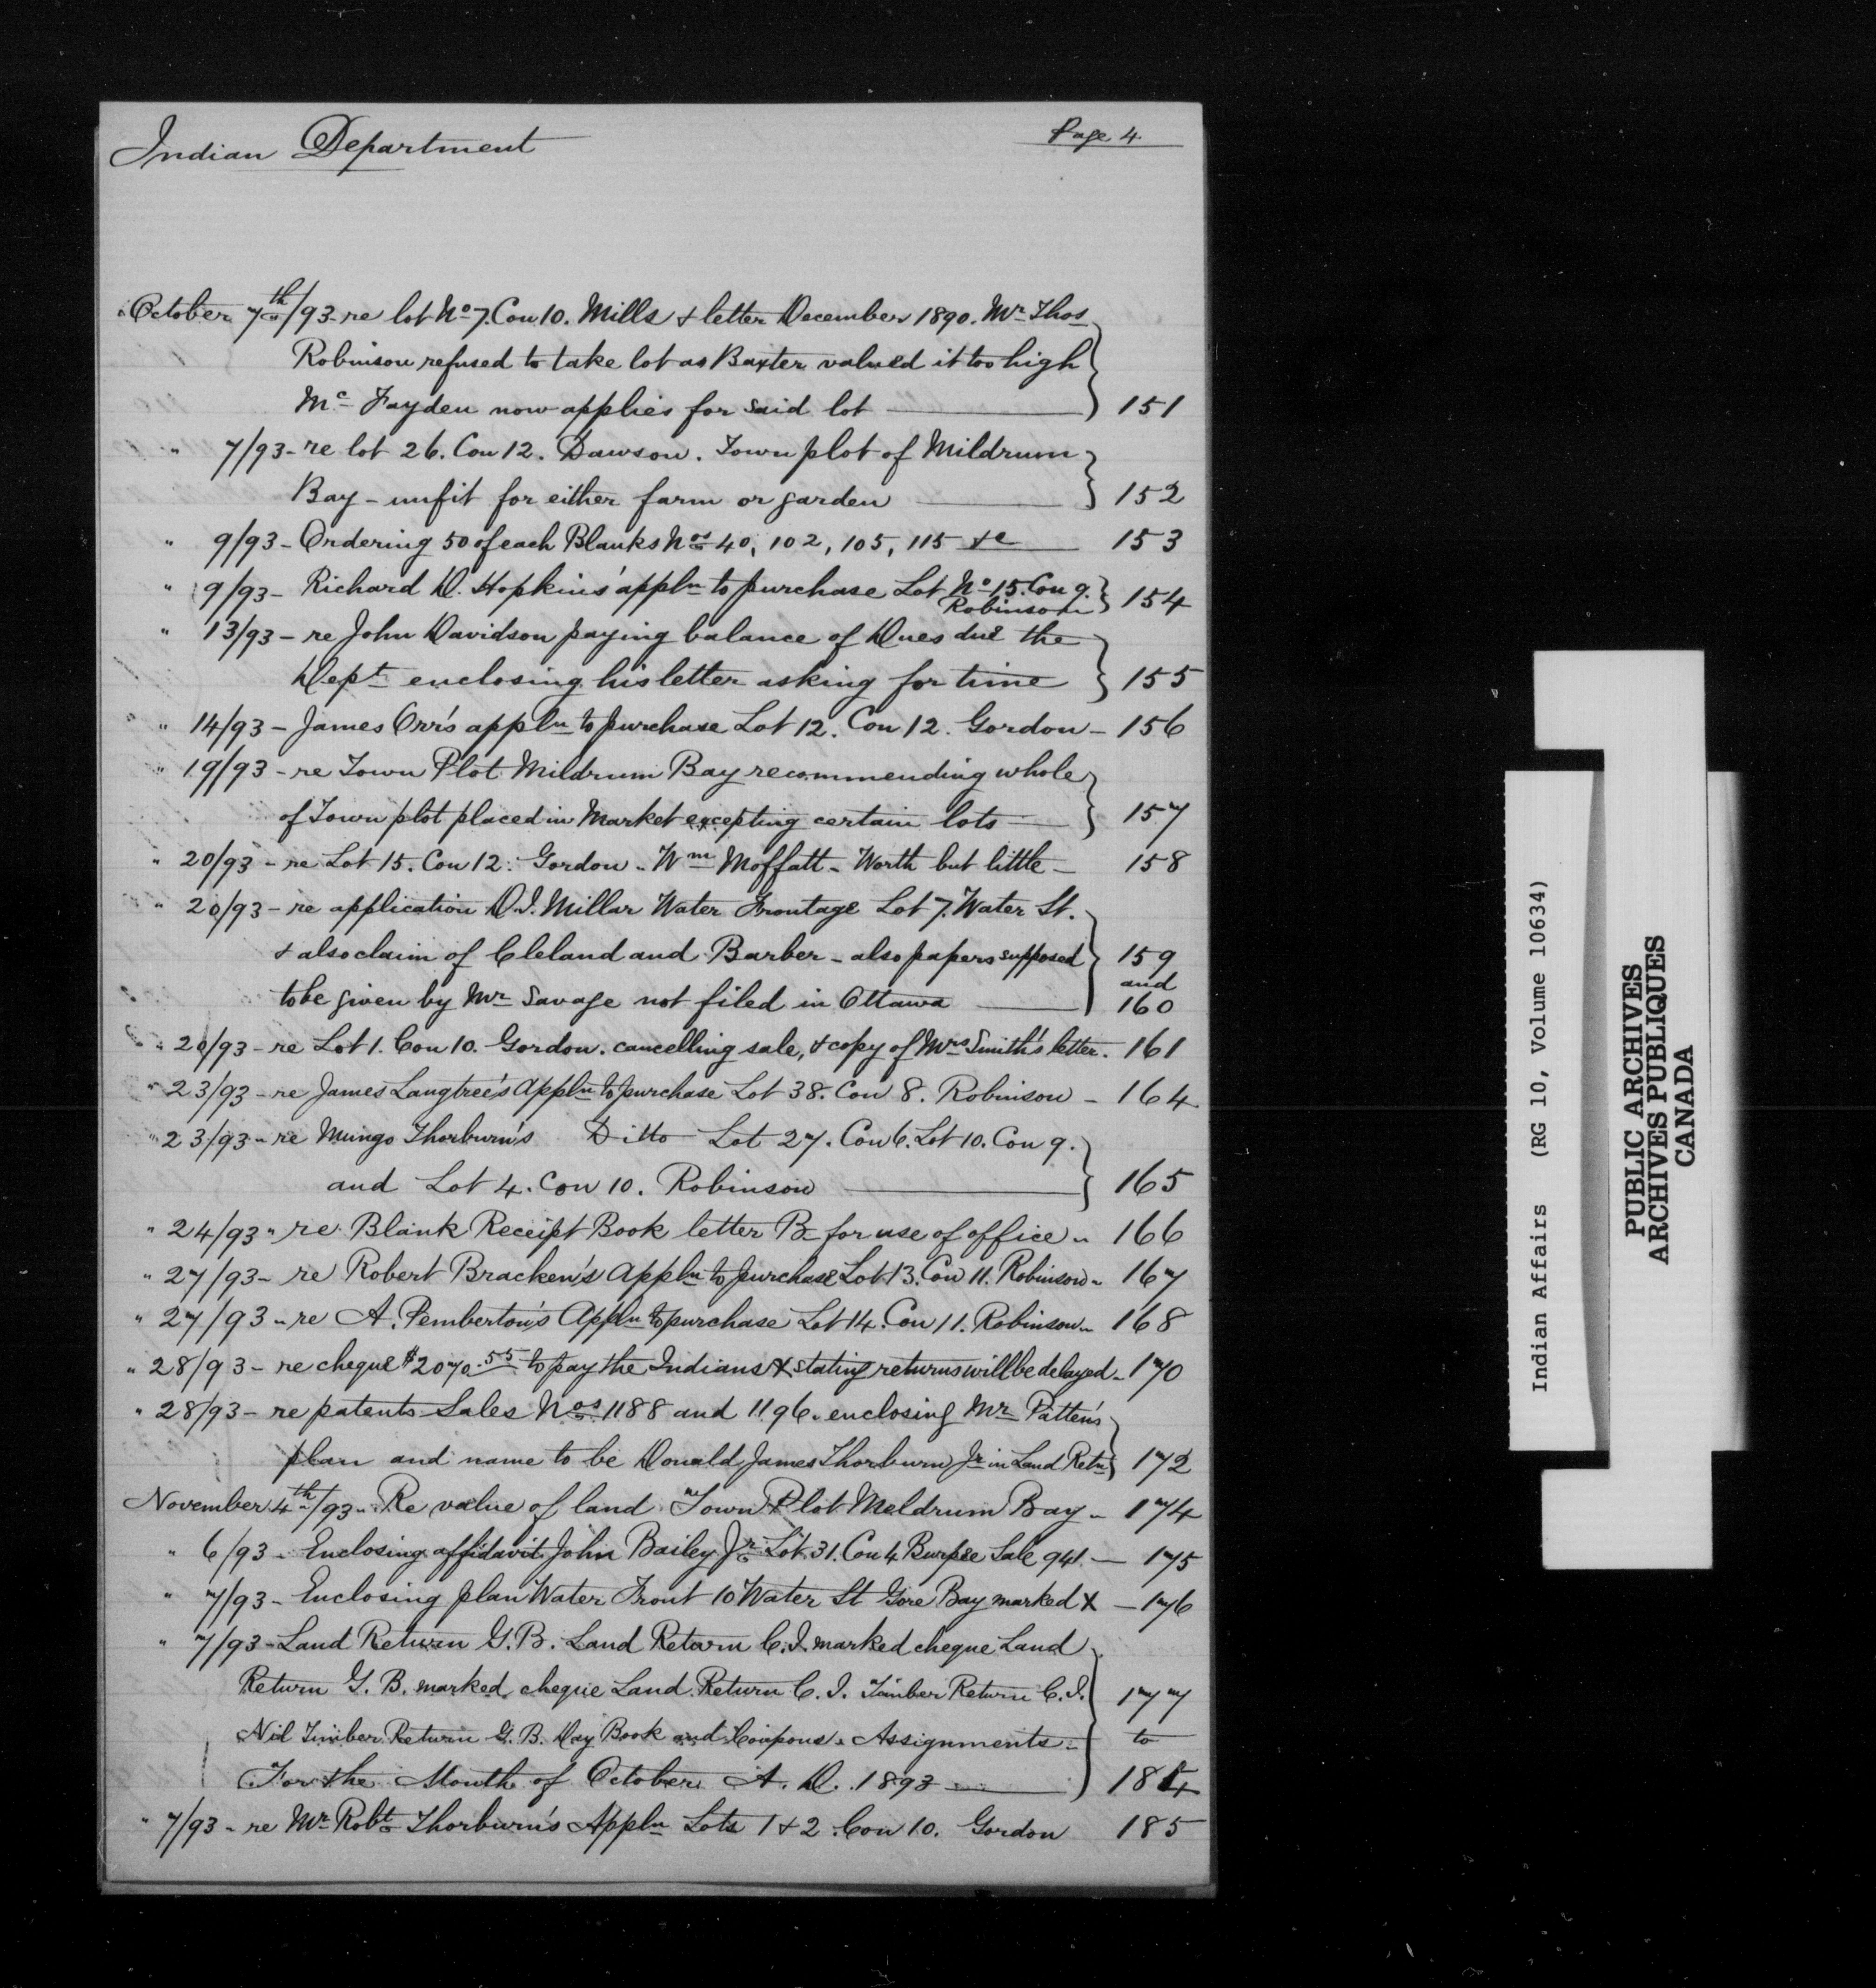 Indian Department
Page 4.
October 7th/93 - re lot No 7. Con 10. Mills & letter December 1890. Mr Thos
Robinson refused to take lot as Baxter valued it too high
Mc Fayden now applies for said lot — 151
" 7/93 - re lot 26. Con 12. Dawson. Town plot of Mildrum
Bay - unfit for either farm or garden — 152
" 9/93 - Ordering 50 of each Blanks Nos 40, 102, 105, 115 &c — 153
" 9/93 - Richard D. Hopkins' appln to purchase Lot No 15. Con 9. 154
Robinson
" 13/93 - re John Davidson paying balance of Dues due the
Dept enclosing his letter asking for time 155
" 14/93 - James Orr's appln to purchase Lot 12. Con 12. Gordon - 156
" 19/93 - re Town Plot Mildrum Bay recommending whole
of Town plot placed in Market excepting certain lots — 157
" 20/93 - re Lot 15. Con 12. Gordon - Wm Moffatt - Worth but little - 158
" 20/93 - re application D.I. Millar Water Frontage Lot 7. Water St.
& also claim of Cleland and Barber - also papers supposed 159
and
to be given by Mr Savage not filed in Ottawa — 160
" 20/93 - re Lot 1. Con 10. Gordon. cancelling sale, & copy of Mrs Smith's letter. 161
" 23/93 - re James Langtree's Appln to purchase Lot 38. Con 8. Robinson - 164
" 23/93 - re Mungo Thorburn's Ditto Lot 27. Con 6. Lot 10. Con 9.
and Lot 4. Con 10. Robinson — 165
" 24/93 " re Blank Receipt Book letter B - for use of office - 166
" 27/93 - re Robert Bracken's Appln to purchase Lot 13. Con 11. Robinson - 167
" 27/93 - re A. Pemberton's Appln to purchase Lot 14. Con 11. Robinson - 168
" 28/93 - re cheque $2070.55 to pay the Indians & stating returns will be delayed - 170
" 28/93 - re patents Sales Nos 1188 and 1196. enclosing Mr Patten's
plan and name to be Donald James Thorburn Jr in Land Retn 172
November 4th/93 - Re value of land Town Plot Meldrum Bay - 174
" 6/93 - Enclosing affidavit John Bailey Jr Lot 31. Con 4 Burpee Sale 941. — 175
" 7/93 - Enclosing plan Water Front 10 Water St Gore Bay marked X — 176
" 7/93 - Land Return G.B. Land Return C.I. marked cheque Land
Return G.B. marked cheque Land Return C.I. Timber Return C.I. 177
Nil Timber Return G.B. Day Book and Coupons & Assignments - to
For the Month of October A.D. 1893 — 184
" 7/93 - re Mr Robt Thorburn's Appln Lots 1 & 2 Con 10. Gordon 185
Indian Affairs (RG 10, Volume 10634)
PUBLIC ARCHIVES
ARCHIVES PUBLIQUES
CANADA